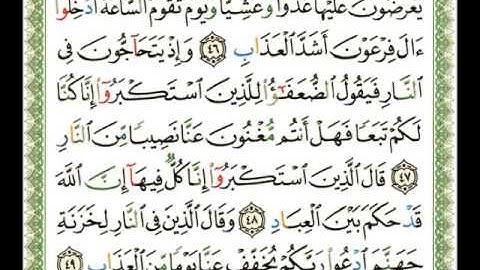 يُعْرَضُونَ عَلَيْهَا غُدُوًّا وَعَشِيًّا وَيَوْمَ تَقُومُ ٱلسَّاعَةُ أَدْخِلُوٓا۟
ءَالَ فِرْعَوْنَ أَشَدَّ ٱلْعَذَابِ ٤٦ وَإِذْ يَتَحَآجُّونَ فِى
ٱلنَّارِ فَيَقُولُ ٱلضُّعَفَٰٓؤُا۟ لِلَّذِينَ ٱسْتَكْبَرُوٓا۟ إِنَّا كُنَّا
لَكُمْ تَبَعًا فَهَلْ أَنتُم مُّغْنُونَ عَنَّا نَصِيبًا مِّنَ ٱلنَّارِ
٤٧ قَالَ ٱلَّذِينَ ٱسْتَكْبَرُوٓا۟ إِنَّا كُلٌّ فِيهَآ إِنَّ ٱللَّهَ
قَدْ حَكَمَ بَيْنَ ٱلْعِبَادِ ٤٨ وَقَالَ ٱلَّذِينَ فِى ٱلنَّارِ لِخَزَنَةِ
جَهَنَّمَ ٱدْعُوا۟ رَبَّكُمْ يُخَفِّفْ عَنَّا يَوْمًا مِّنَ ٱلْعَذَابِ ٤٩